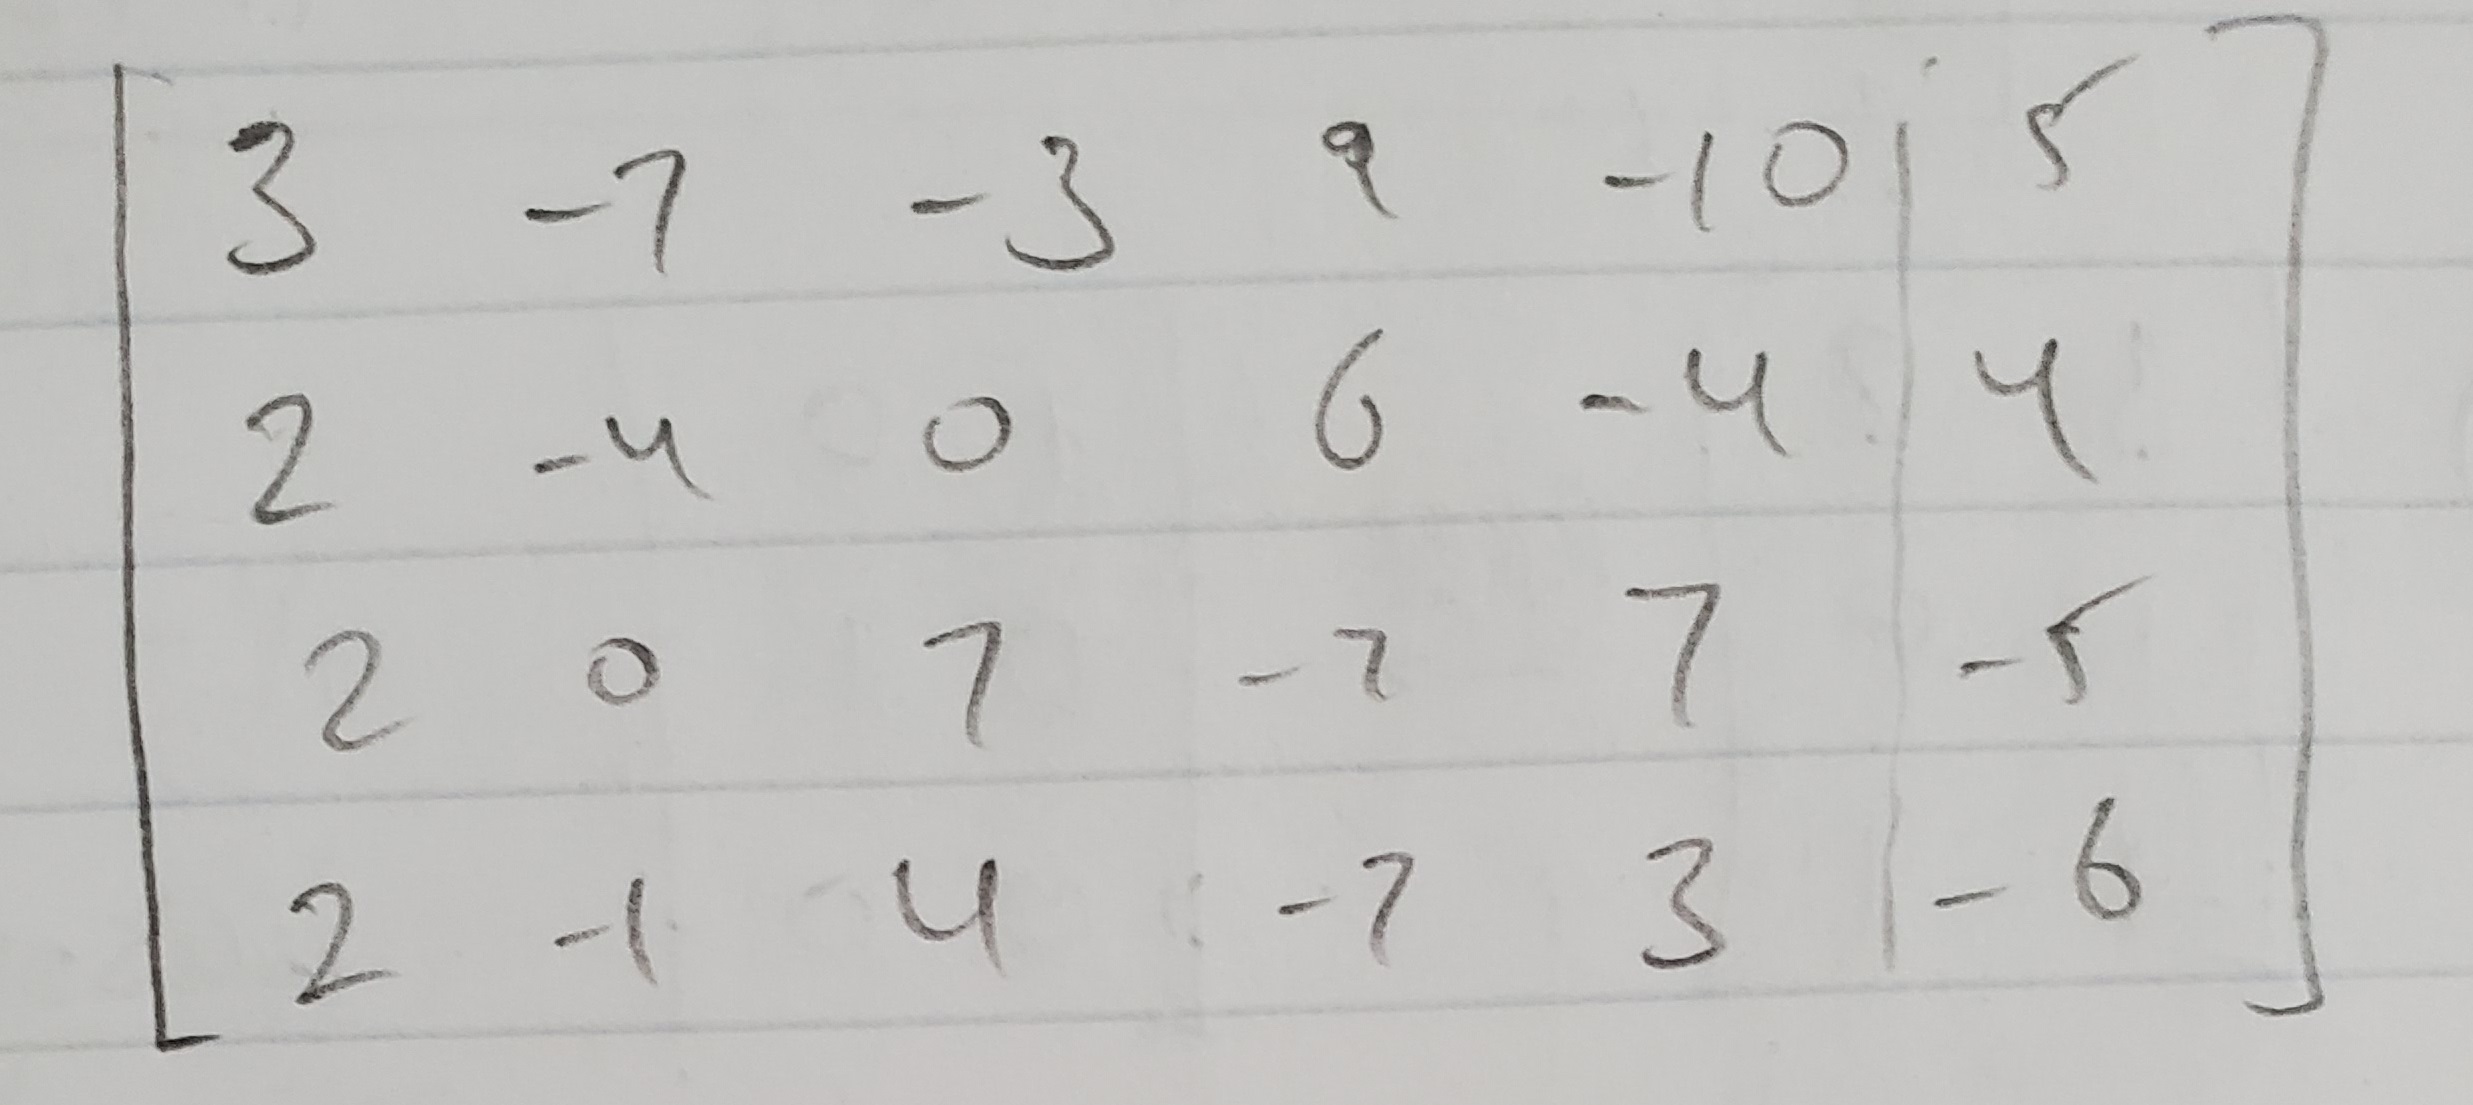 3 -7 -3 9 -10 | 5
2 -4 0 6 -4 | 4
2 0 7 -7 7 | -5
2 -1 4 -7 3 | -6